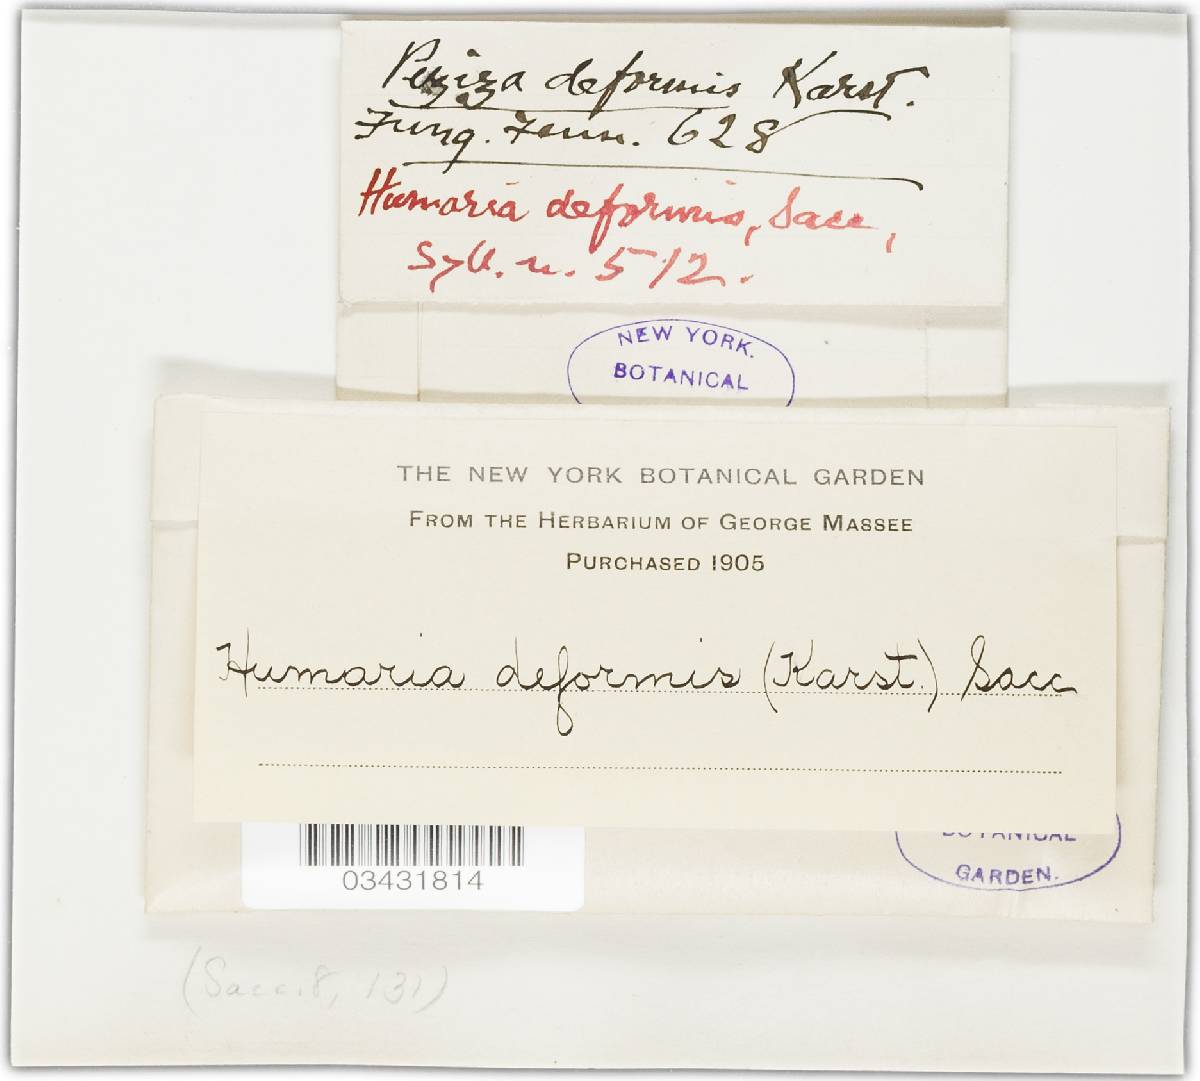 Peziza deformis Karst.
Fung. Fenn. 628
Humaria deformis, Sacc,
Syll. n. 512.
NEW YORK.
BOTANICAL
THE NEW YORK BOTANICAL GARDEN
FROM THE HERBARIUM OF GEORGE MASSEE
PURCHASED 1905
Humaria deformis (Karst.) Sacc
BOTANICAL
GARDEN.
03431814
(Sacc. 8, 131)